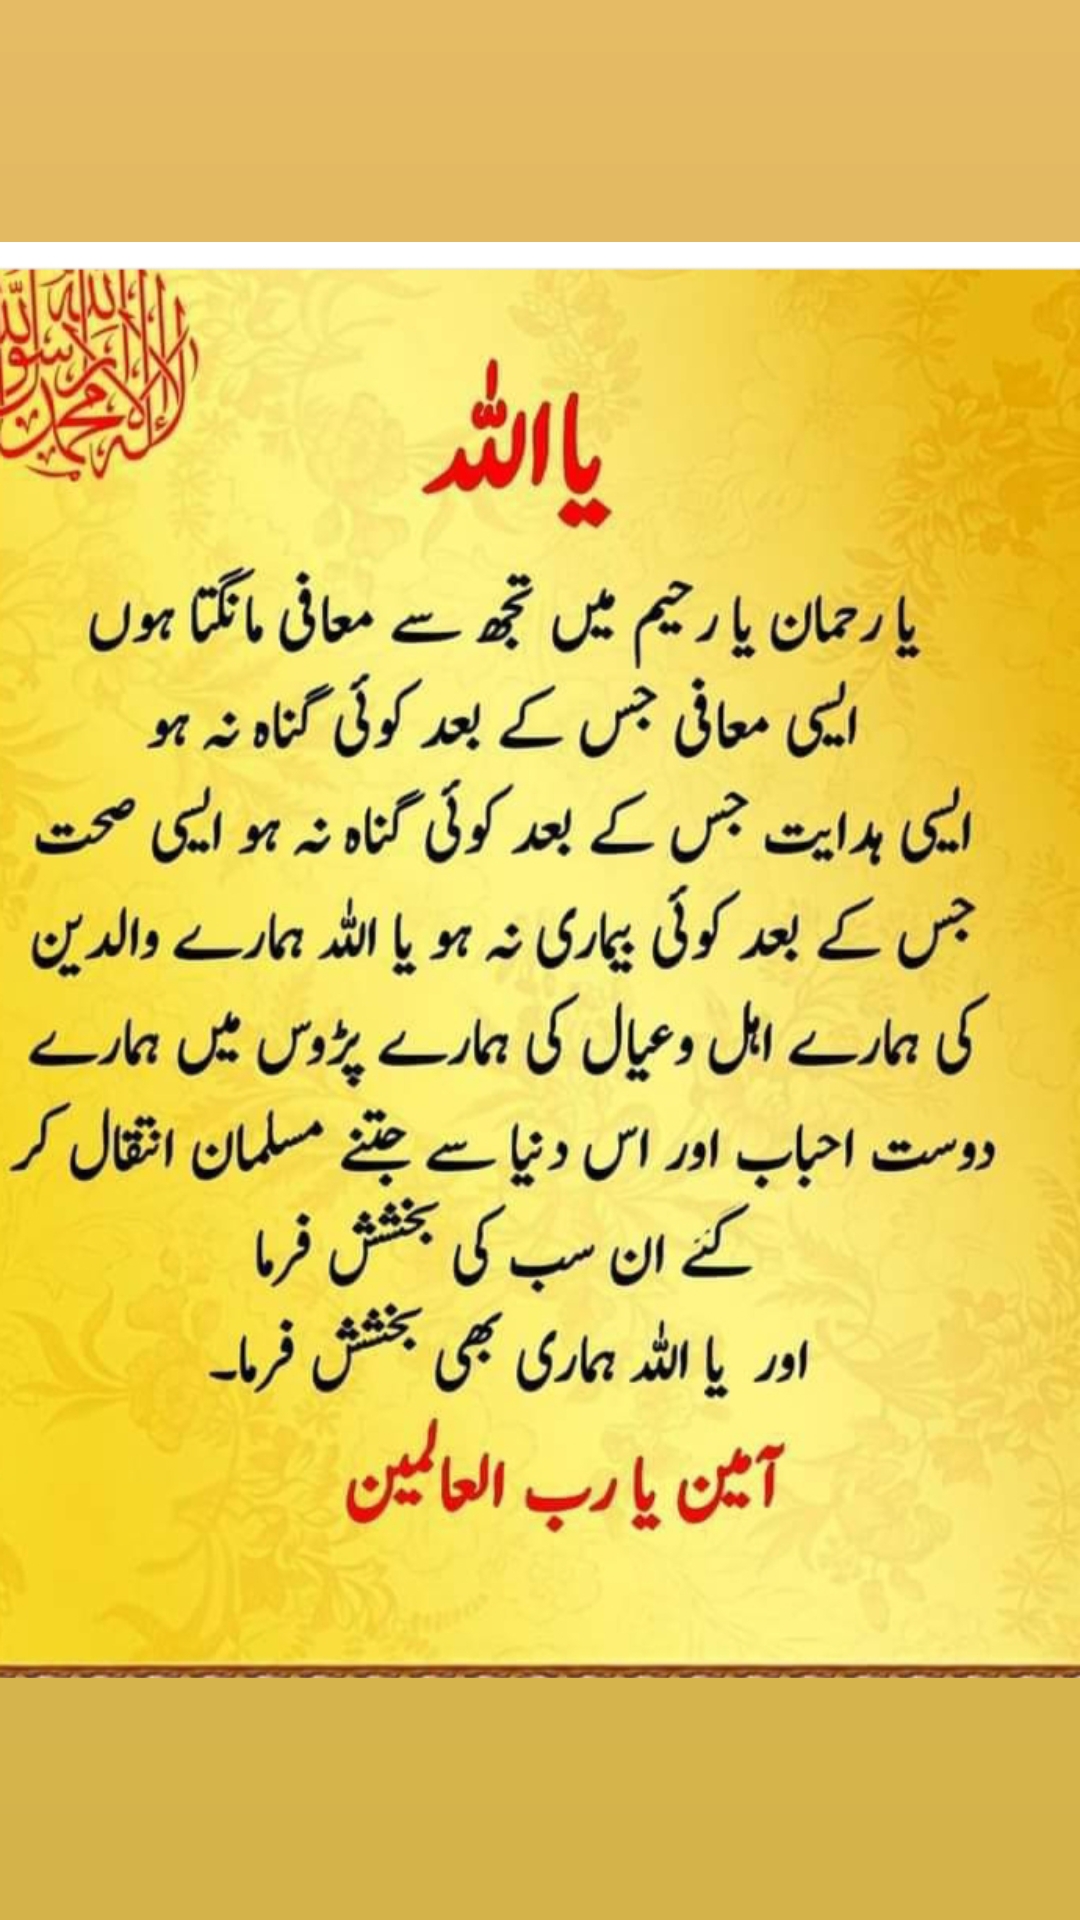 لا إله إلا الله محمد رسول الله
یا اللہ
یا رحمان یا رحیم میں تجھ سے معافی مانگتا ہوں
ایسی معافی جس کے بعد کوئی گناہ نہ ہو
ایسی ہدایت جس کے بعد کوئی گناہ نہ ہو ایسی صحت
جس کے بعد کوئی بیماری نہ ہو یا اللہ ہمارے والدین
کی ہمارے اہل وعیال کی ہمارے پڑوس میں ہمارے
دوست احباب اور اس دنیا سے جتنے مسلمان انتقال کر
گئے ان سب کی بخشش فرما
اور یا اللہ ہماری بھی بخشش فرما۔
آمین یا رب العالمین